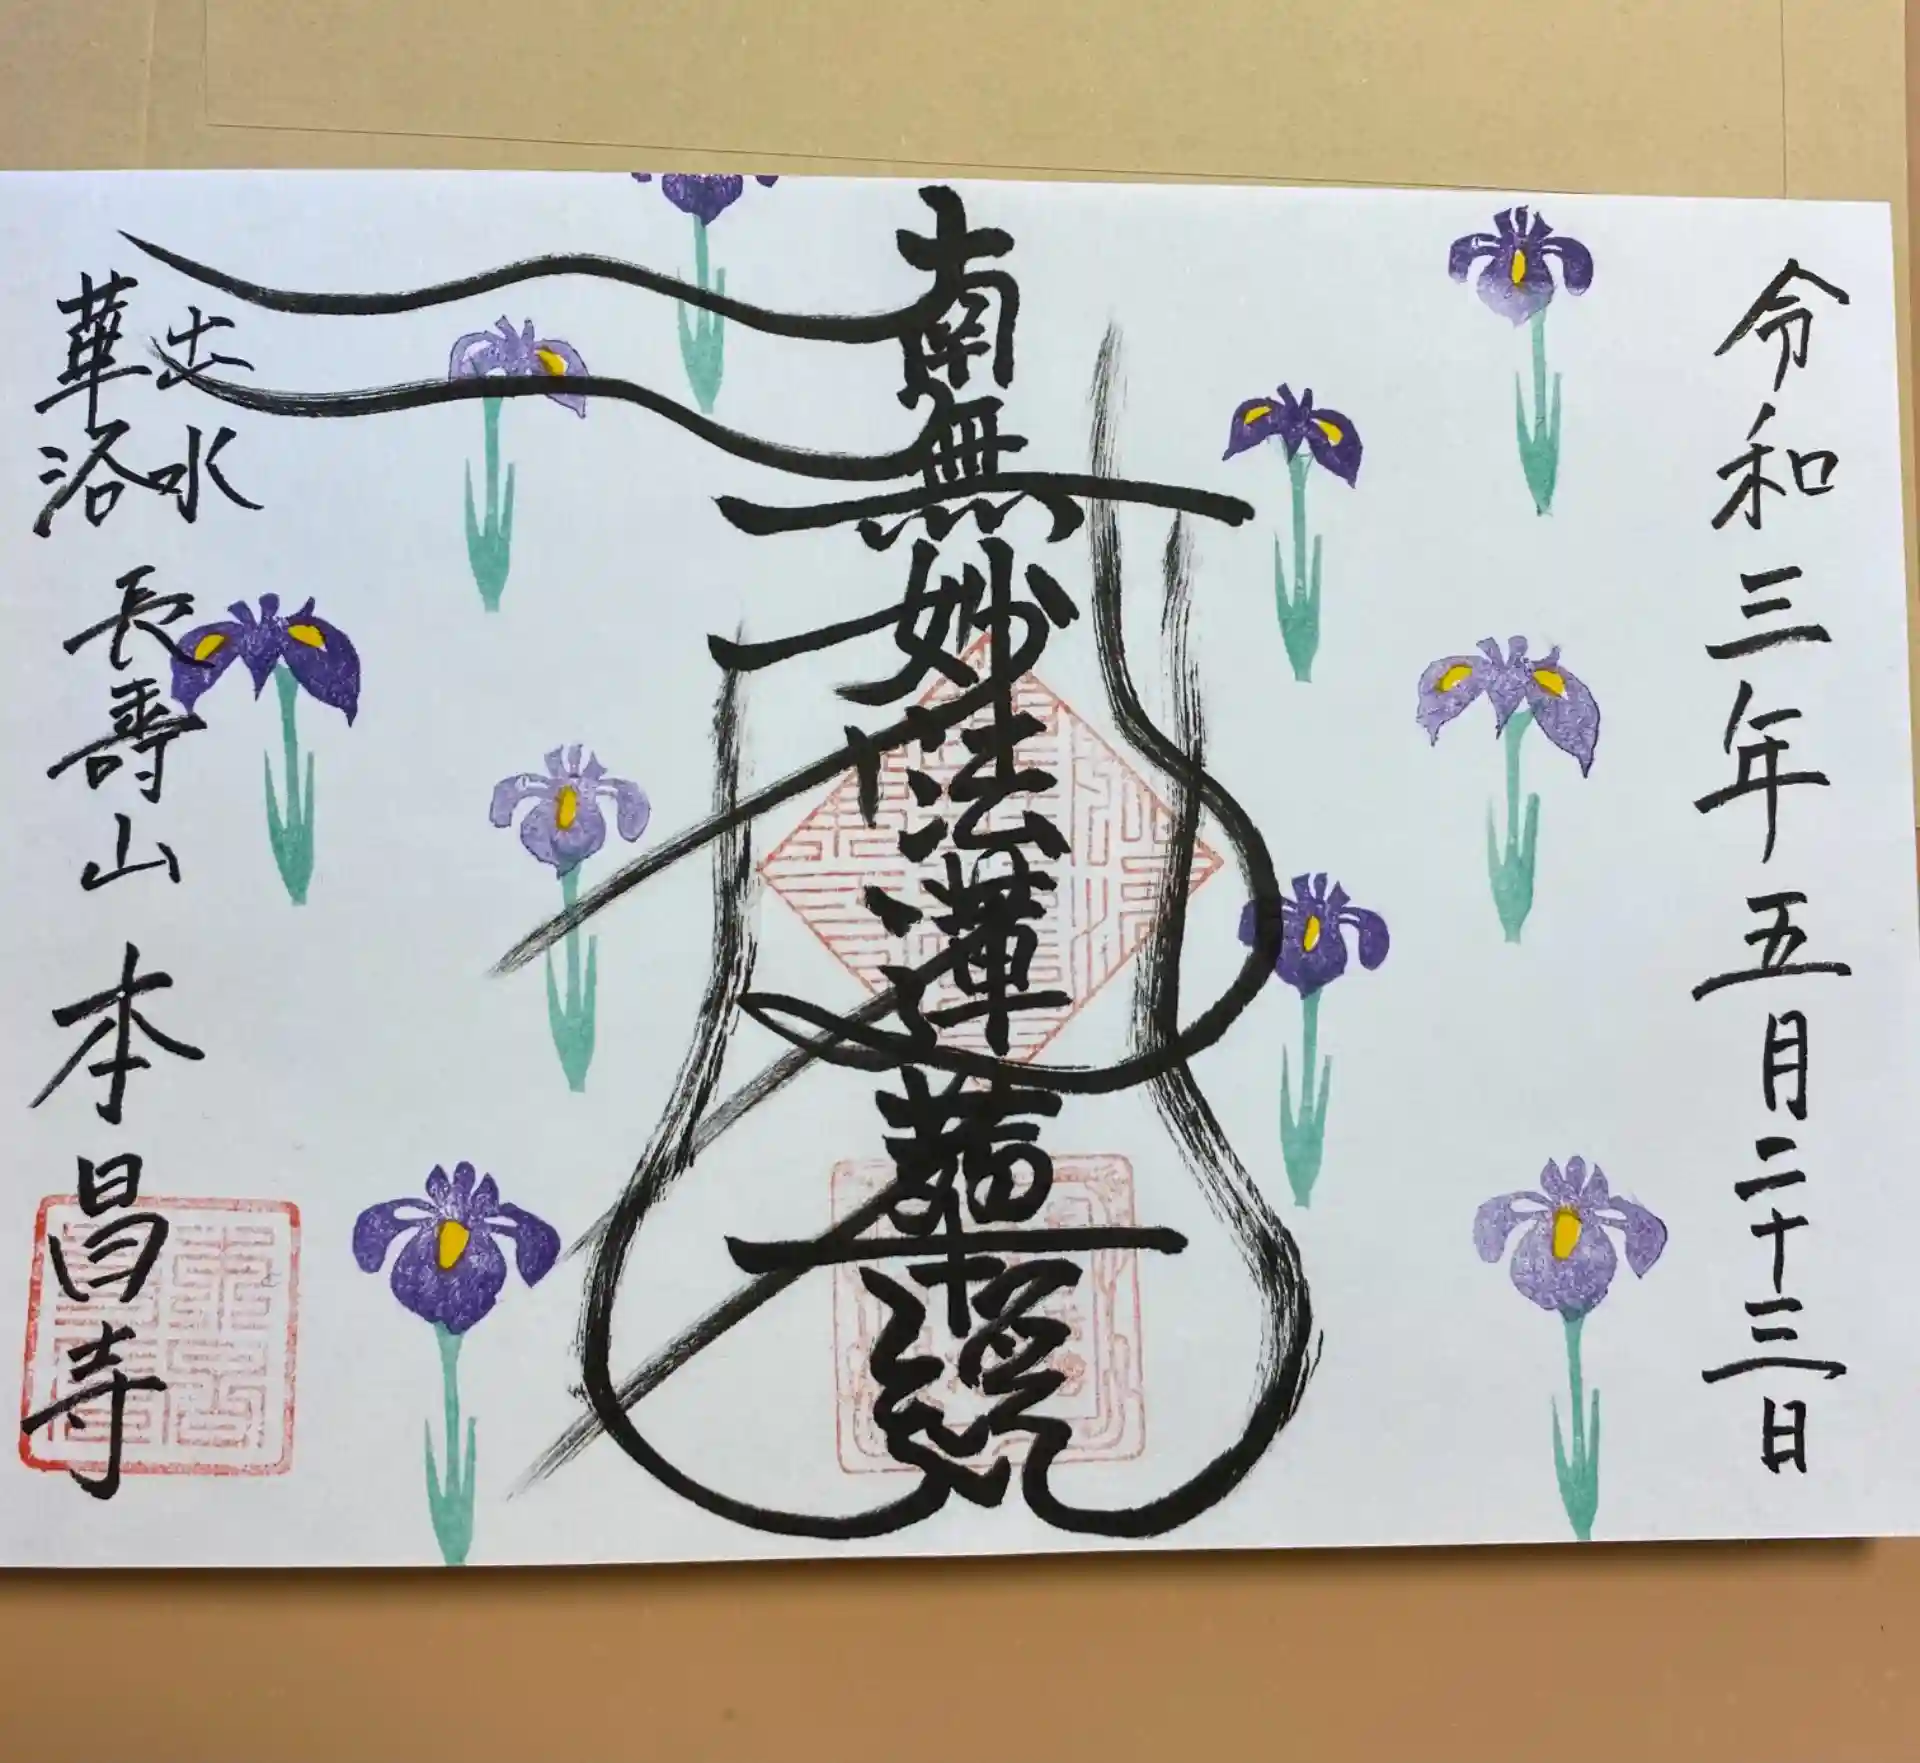 令和三年五月二十三日
南無妙法蓮華経
出水
華洛
長壽山
本昌寺